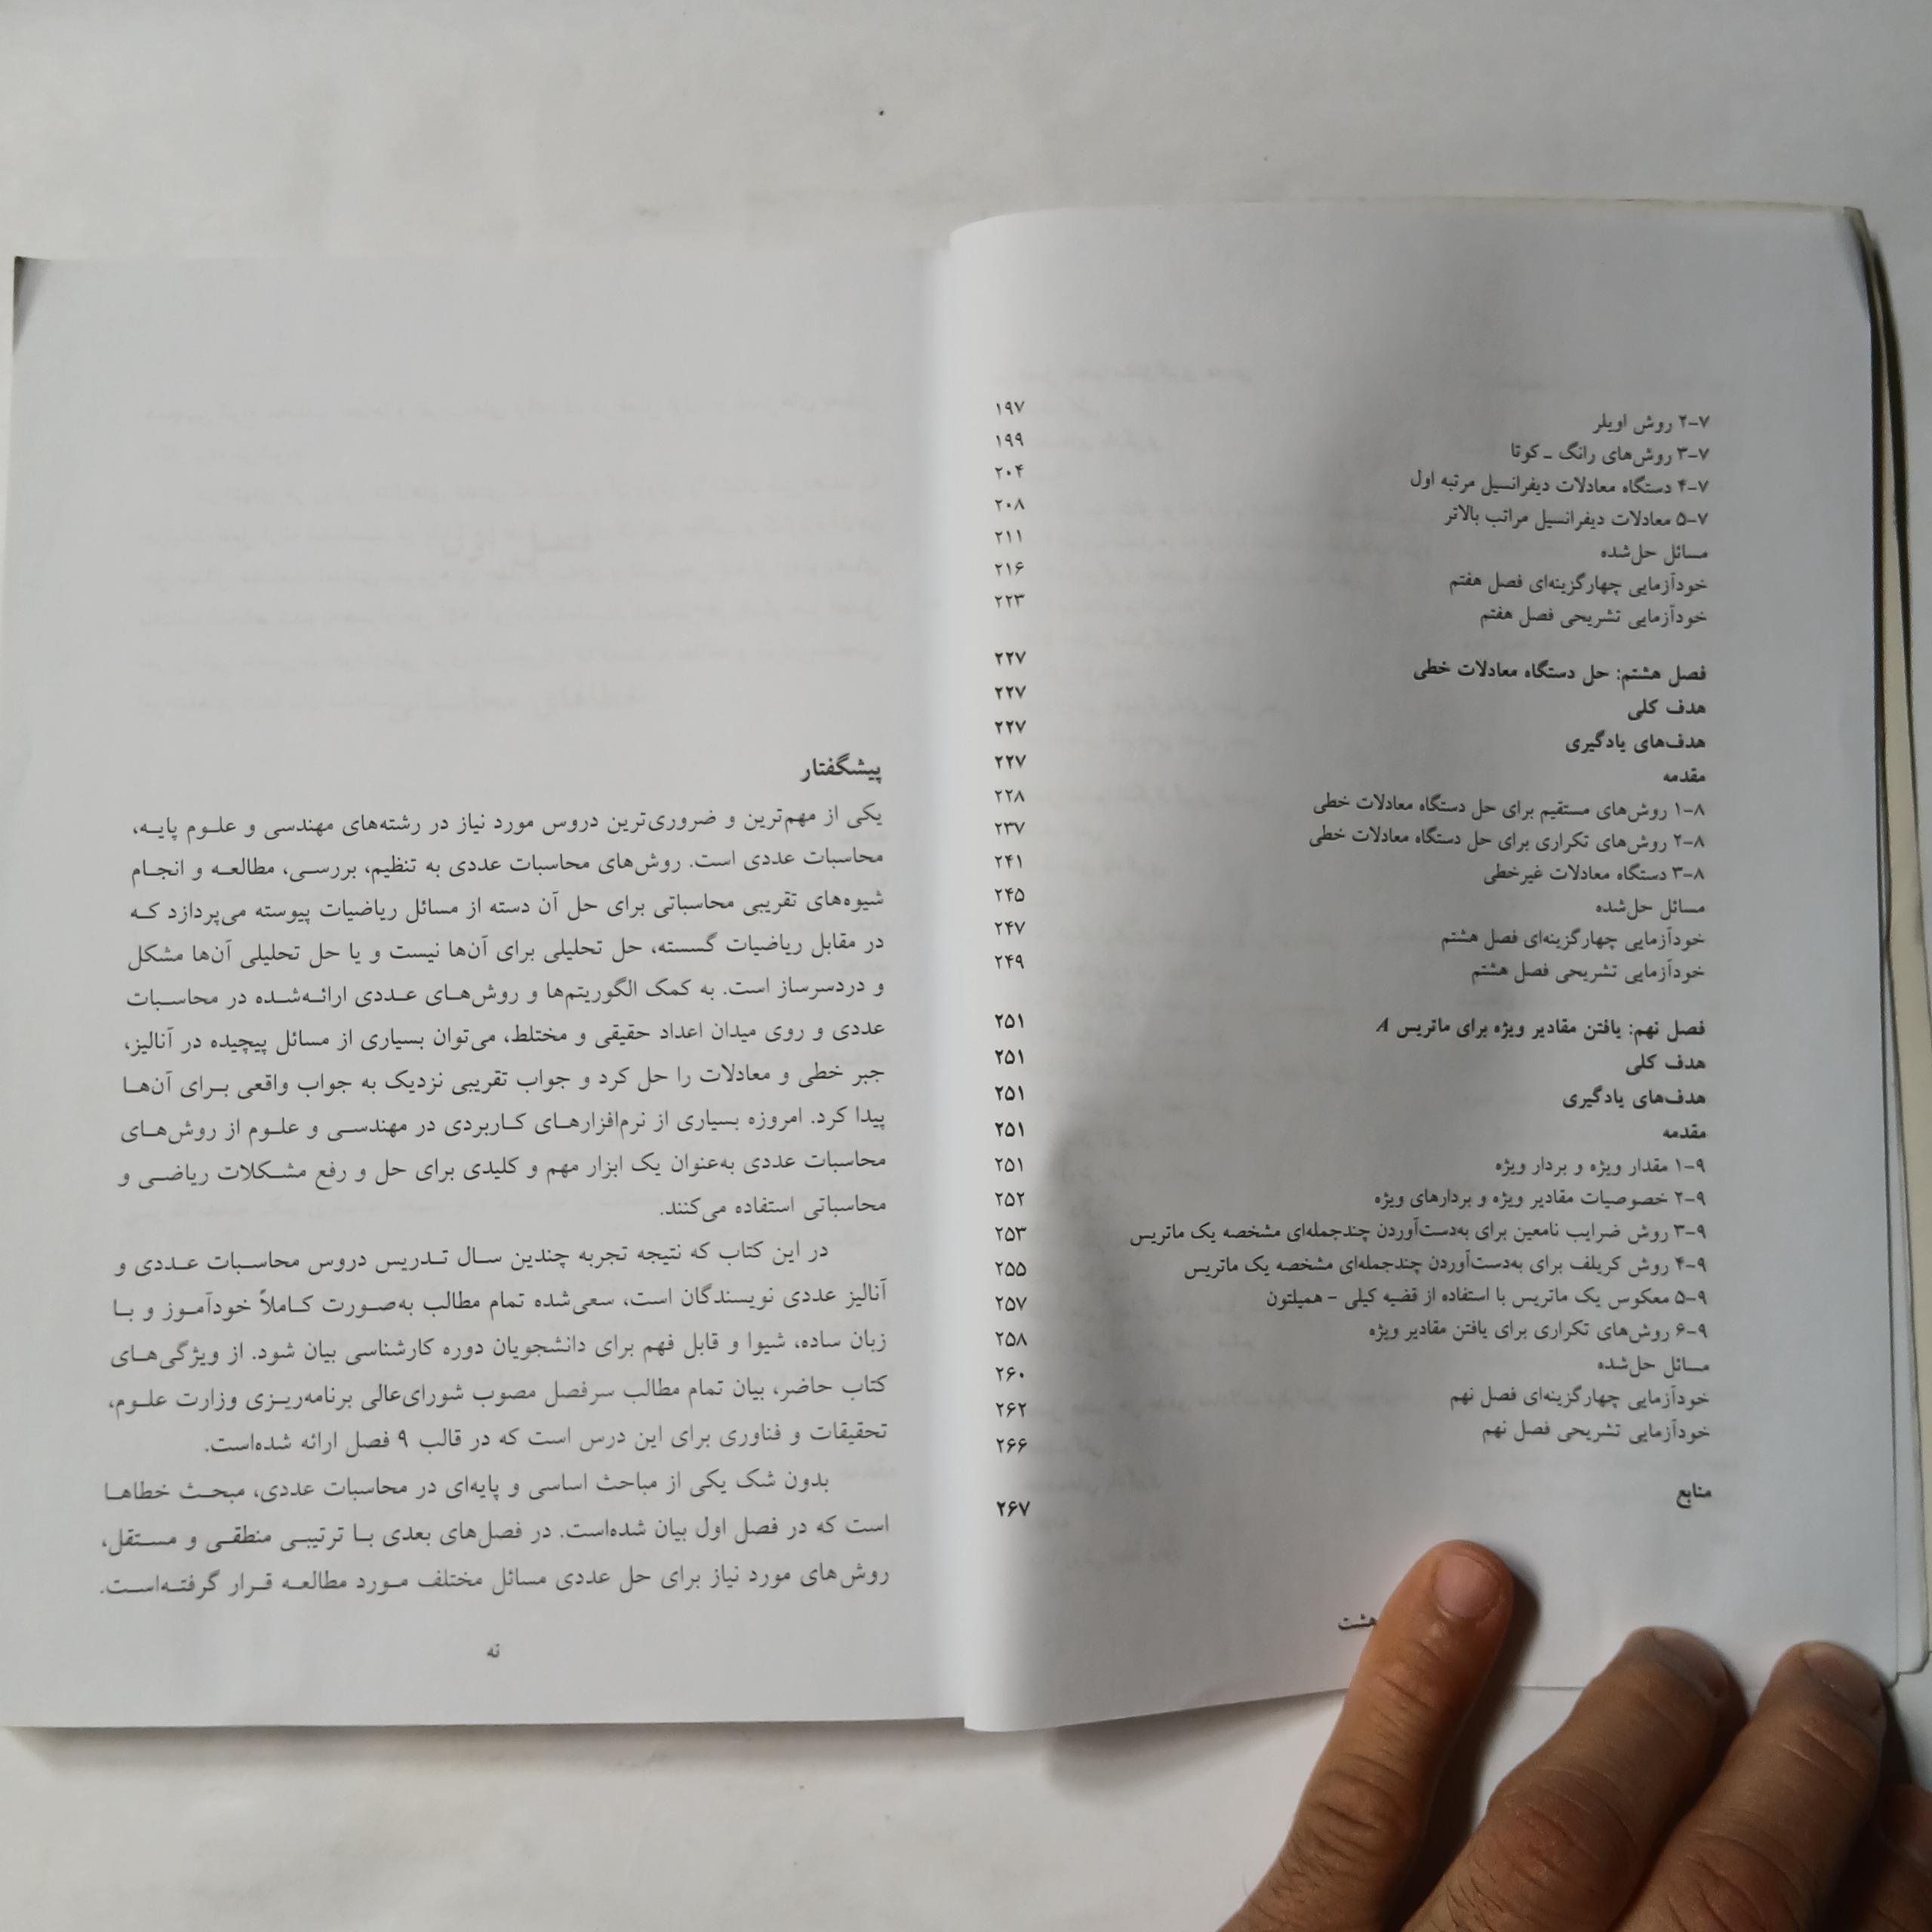 ۷-۲ روش اویلر ۱۹۷
۷-۳ روش‌های رانگ ـ کوتا ۱۹۹
۷-۴ دستگاه معادلات دیفرانسیل مرتبه اول ۲۰۴
۷-۵ معادلات دیفرانسیل مراتب بالاتر ۲۰۸
مسائل حل‌شده ۲۱۱
خودآزمایی چهارگزینه‌ای فصل هفتم ۲۱۶
خودآزمایی تشریحی فصل هفتم ۲۲۳
فصل هشتم: حل دستگاه معادلات خطی ۲۲۷
هدف کلی ۲۲۷
هدف‌های یادگیری ۲۲۷
مقدمه ۲۲۷
۸-۱ روش‌های مستقیم برای حل دستگاه معادلات خطی ۲۲۸
۸-۲ روش‌های تکراری برای حل دستگاه معادلات خطی ۲۳۷
۸-۳ دستگاه معادلات غیرخطی ۲۴۱
مسائل حل‌شده ۲۴۵
خودآزمایی چهارگزینه‌ای فصل هشتم ۲۴۷
خودآزمایی تشریحی فصل هشتم ۲۴۹
فصل نهم: یافتن مقادیر ویژه برای ماتریس A ۲۵۱
هدف کلی ۲۵۱
هدف‌های یادگیری ۲۵۱
مقدمه ۲۵۱
۹-۱ مقدار ویژه و بردار ویژه ۲۵۱
۹-۲ خصوصیات مقادیر ویژه و بردارهای ویژه ۲۵۲
۹-۳ روش ضرایب نامعین برای به‌دست‌آوردن چندجمله‌ای مشخصه یک ماتریس ۲۵۳
۹-۴ روش کریلف برای به‌دست‌آوردن چندجمله‌ای مشخصه یک ماتریس ۲۵۵
۹-۵ معکوس یک ماتریس با استفاده از قضیه کیلی - همیلتون ۲۵۷
۹-۶ روش‌های تکراری برای یافتن مقادیر ویژه ۲۵۸
مسائل حل‌شده ۲۶۰
خودآزمایی چهارگزینه‌ای فصل نهم ۲۶۲
خودآزمایی تشریحی فصل نهم ۲۶۶
منابع ۲۶۷
هشت
پیشگفتار
یکی از مهم‌ترین و ضروری‌ترین دروس مورد نیاز در رشته‌های مهندسی و علوم پایه،
محاسبات عددی است. روش‌های محاسبات عددی به تنظیم، بررسی، مطالعه و انجام
شیوه‌های تقریبی محاسباتی برای حل آن دسته از مسائل ریاضیات پیوسته می‌پردازد که
در مقابل ریاضیات گسسته، حل تحلیلی برای آن‌ها نیست و یا حل تحلیلی آن‌ها مشکل
و دردسرساز است. به کمک الگوریتم‌ها و روش‌های عددی ارائه‌شده در محاسبات
عددی و روی میدان اعداد حقیقی و مختلط، می‌توان بسیاری از مسائل پیچیده در آنالیز،
جبر خطی و معادلات را حل کرد و جواب تقریبی نزدیک به جواب واقعی برای آن‌ها
پیدا کرد. امروزه بسیاری از نرم‌افزارهای کاربردی در مهندسی و علوم از روش‌های
محاسبات عددی به‌عنوان یک ابزار مهم و کلیدی برای حل و رفع مشکلات ریاضی و
محاسباتی استفاده می‌کنند.
در این کتاب که نتیجه تجربه چندین سال تدریس دروس محاسبات عددی و
آنالیز عددی نویسندگان است، سعی‌شده تمام مطالب به‌صورت کاملاً خودآموز و با
زبان ساده، شیوا و قابل فهم برای دانشجویان دوره کارشناسی بیان شود. از ویژگی‌های
کتاب حاضر، بیان تمام مطالب سرفصل مصوب شورای‌عالی برنامه‌ریزی وزارت علوم،
تحقیقات و فناوری برای این درس است که در قالب ۹ فصل ارائه شده‌است.
بدون شک یکی از مباحث اساسی و پایه‌ای در محاسبات عددی، مبحث خطاها
است که در فصل اول بیان شده‌است. در فصل‌های بعدی با ترتیبی منطقی و مستقل،
روش‌های مورد نیاز برای حل عددی مسائل مختلف مورد مطالعه قرار گرفته‌است.
نه